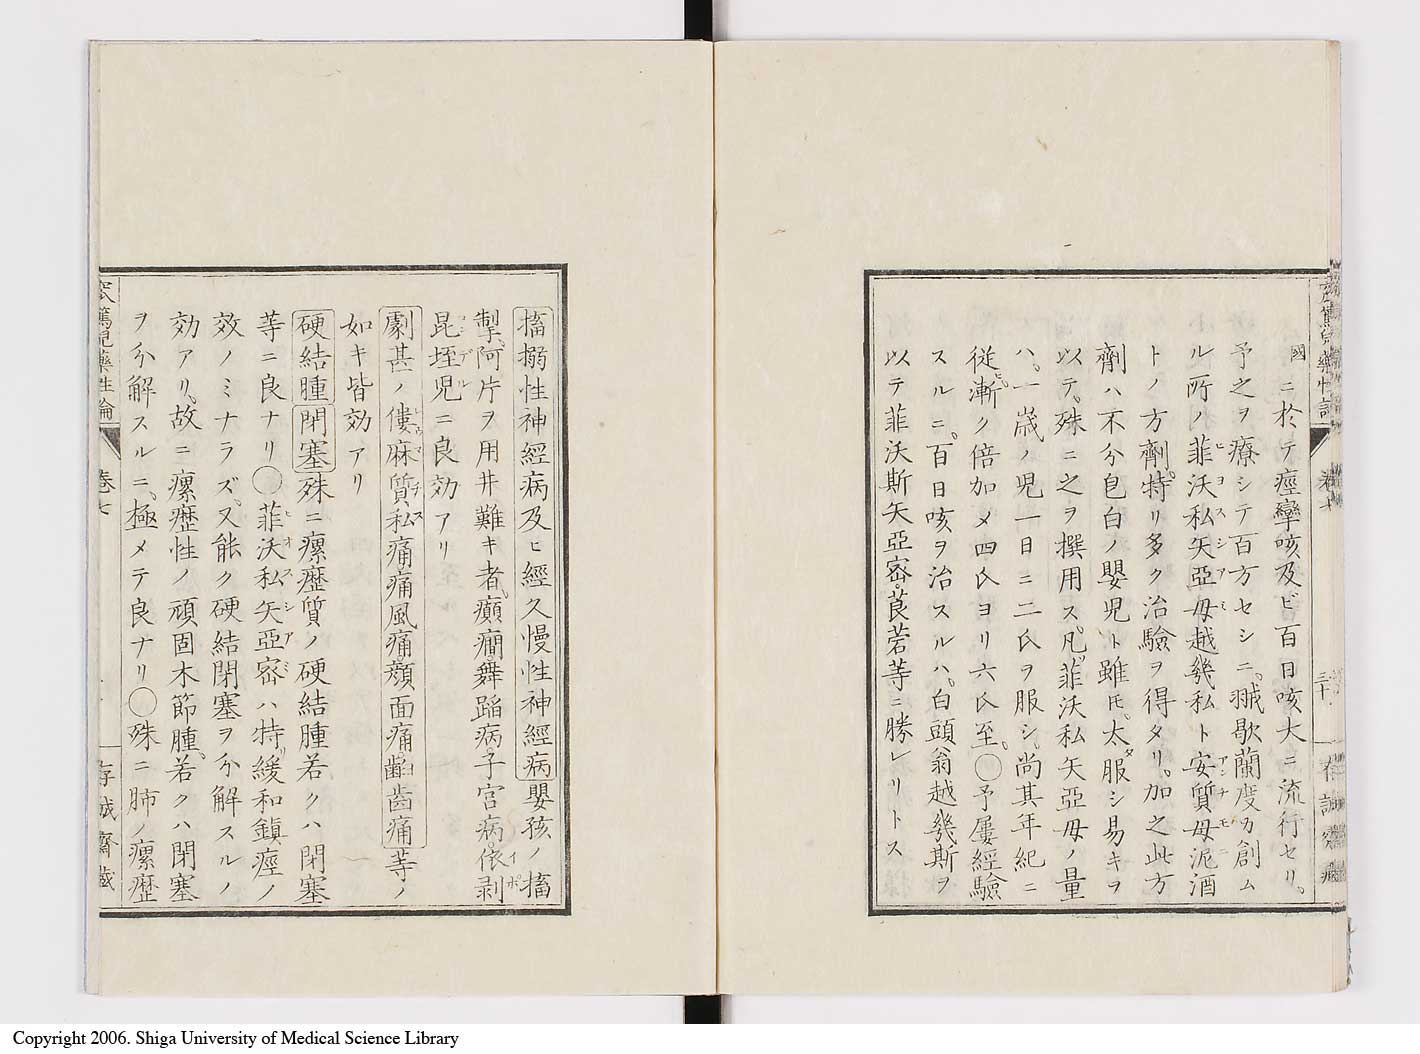 國ニ於テ痙攣咳及ビ百日咳大ニ流行セリ。
予之ヲ療シテ百方セシニ。馘歇蘭度カ創ム
ル所ノ菲沃私矢亞母越幾私ト安質母泥酒
トノ方劑。特リ多ク治驗ヲ得タリ。加之此方
劑ハ不分皂白ノ嬰児ト雖モ。太タ服シ易キヲ
以テ。殊ニ之ヲ撰用ス。凡ソ菲沃私矢亞母ノ量
ハ。一歳ノ児一日ニ二氏ヲ服シ。尚其年紀ニ
従ヒ漸ク倍加メ四氏ヨリ六氏至。〇予屢經驗
スルニ。百日咳ヲ治スルハ。白頭翁越幾斯ヲ
以テ菲沃斯矢亞密。莨菪等ニ勝レリトス
三十
搐搦性神經病及ヒ經久慢性神經病嬰孩ノ搐
掣。阿片ヲ用井難キ者。癲癇。舞蹈病。子宮病。依剥
昆垤児ニ良効アリ
劇甚ノ僂麻質私痛痛風痛顏面痛齲齒痛等ノ
如キ皆効アリ
硬結腫閉塞殊ニ瘰癧質ノ硬結腫若クハ閉塞
等ニ良ナリ〇菲沃私矢亞密ハ特リ緩和鎮痙ノ
效ノミナラズ。又能ク硬結閉塞ヲ分解スルノ
効アリ。故ニ瘰癧性ノ頑固木節腫。若クハ閉塞
ヲ分解スルニ。極メテ良ナリ〇殊ニ肺ノ瘰癧
窊篤児藥性論
卷七
存誠齋藏
Copyright 2006. Shiga University of Medical Science Library